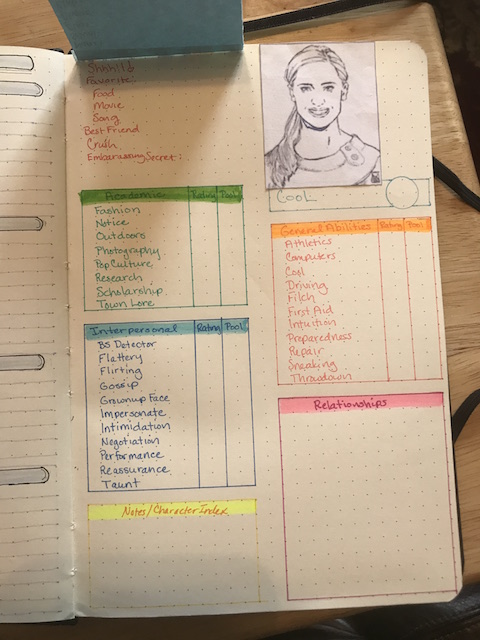 Shhh!!!
Favorite:
Food
Movie
Song
Best Friend
Crush
Embarassing Secret:
Academic Rating Pool
Fashion
Notice
Outdoors
Photography
Pop Culture
Research
Scholarship
Town Lore
Interpersonal Rating Pool
BS Detector
Flattery
Flirting
Gossip
Grownup Face
Impersonate
Intimidation
Negotiation
Performance
Reassurance
Taunt
Notes/Character Index
COOL
General Abilities Rating Pool
Athletics
Computers
Cool
Driving
Filch
First Aid
Intuition
Preparedness
Repair
Sneaking
Throwdown
Relationships